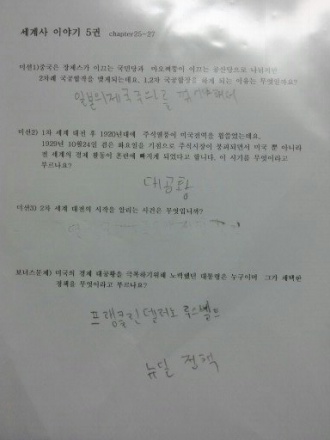 세계사 이야기 5권 chapter25-27
미션1)중국은 장제스가 이끄는 국민당과 마오쩌둥이 이끄는 공산당으로 나뉘지만
2차례 국공합작을 맺게되는데요. 1,2차 국공합작을 하게 되는 이유는 무엇일까요?
일본의 제국주의를
미션2) 1차 세계 대전 후 1920년대에 주식열풍이 미국전역을 휩쓸었는데요.
1929년 10월24일 검은 화요일을 기점으로 주식시장이 붕괴되면서 미국 뿐 아니라
전 세계의 경제 활동이 혼란에 빠지게 되었다고 합니다. 이 시기를 무엇이라고
부르나요?
대공황
미션3) 2차 세계 대전의 시작을 알리는 사건은 무엇입니까?
보너스문제) 미국의 경제 대공황을 극복하기위해 노력했던 대통령은 누구이며 그가 채택한
정책을 무엇이라고 부르나요?
프랭클린 델러노 루스벨트
뉴딜 정책